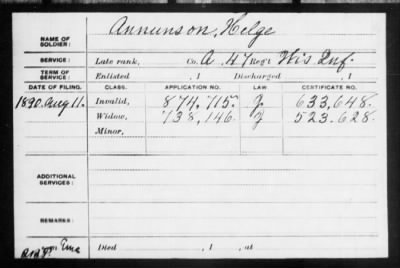 NAME OF SOLDIER: Annunson, Helge
SERVICE: Late rank, Co. A. 47 Reg't Wis Inf.
TERM OF SERVICE: Enlisted , 1 Discharged , 1
DATE OF FILING. CLASS. APPLICATION NO. LAW CERTIFICATE NO.
1890. Aug 11. Invalid, 874,715. J. 633,648.
Widow, 738,146. J 523.628
Minor,
ADDITIONAL SERVICES:
REMARKS:
Died , 1 , at